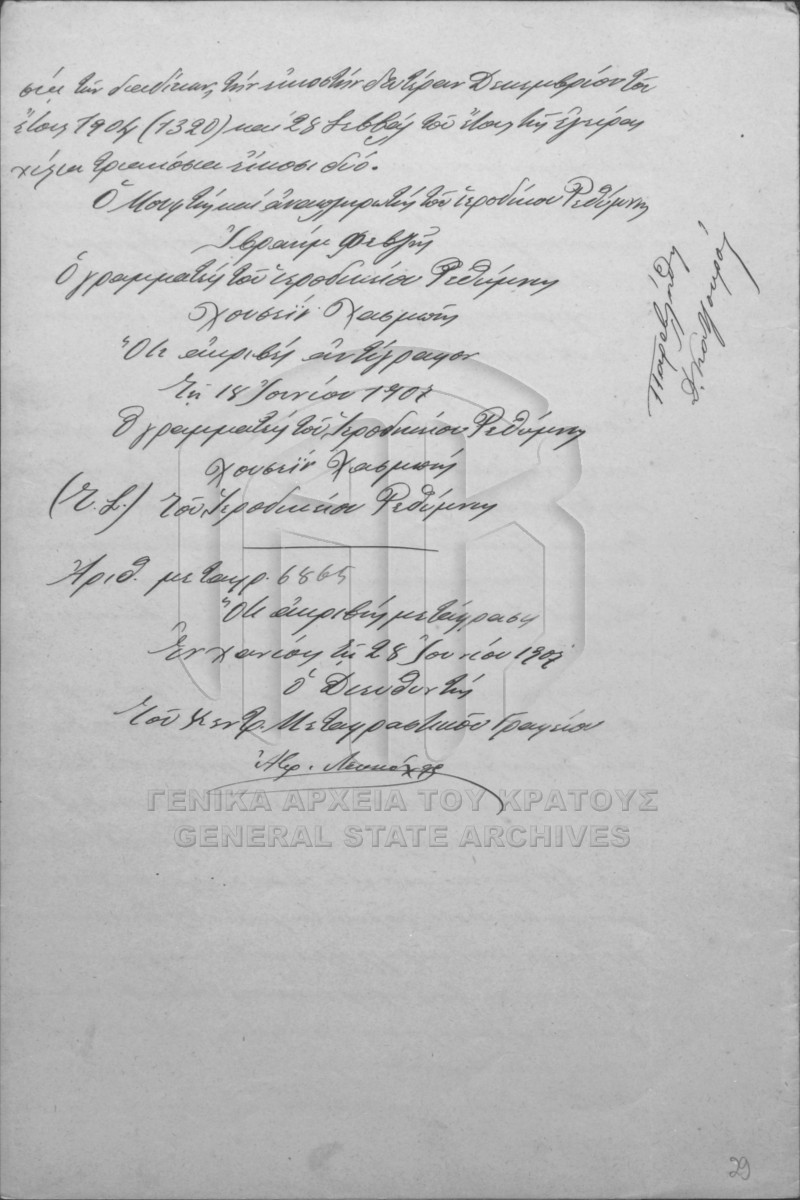 σία τῶν διαδίκων, τὴν εἰκοστὴν δευτέραν Δεκεμβρίου τοῦ
ἔτους 1904 (1320) καὶ 28 Σεββὰλ τοῦ ἔτους τῆς ἐγείρας
χίλια τριακόσια εἴκοσι δύο.
Ὁ Μουφτῆς καὶ ἀναπληρωτὴς τοῦ ἱεροδίκου Ρεθύμνης
Ἰβραὴμ Φεβζῆς
Ὁ γραμματεὺς τοῦ ἱεροδικείου Ρεθύμνης
Χουσεῒν Χασμπῆς
Ὅτι ἀκριβὲς ἀντίγραφον
Τῇ 18 Ἰουνίου 1907
Ὁ γραμματεὺς τοῦ Ἱεροδικείου Ρεθύμνης
Χουσεῒν Χασμπῆς
(Τ.Σ.) τοῦ Ἱεροδικείου Ρεθύμνης
Ἀριθ. μεταφρ. 6865
Ὅτι ἀκριβὴς μετάφρασις
Ἐν Χανίοις τῇ 28 Ἰουνίου 1907
Ὁ Διευθυντὴς
τοῦ Κεντρ. Μεταφραστικοῦ Γραφείου
Παρεβλήθη
ΓΕΝΙΚΑ ΑΡΧΕΙΑ ΤΟΥ ΚΡΑΤΟΥΣ
GENERAL STATE ARCHIVES
29